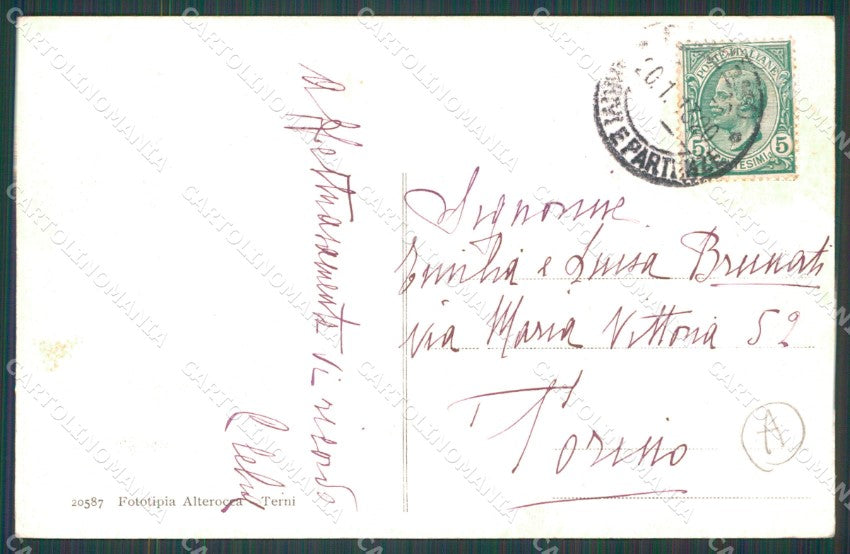 Affettuosamente Vi ricorda
POSTE ITALIANE
5 5
CENTESIMI
E PARTENZE
Signorine
Emilia e Luisa Brunati
via Maria Vittoria 52
Torino
A
20587 Fototipia Alterocca - Terni
CARTOLINOMANIA